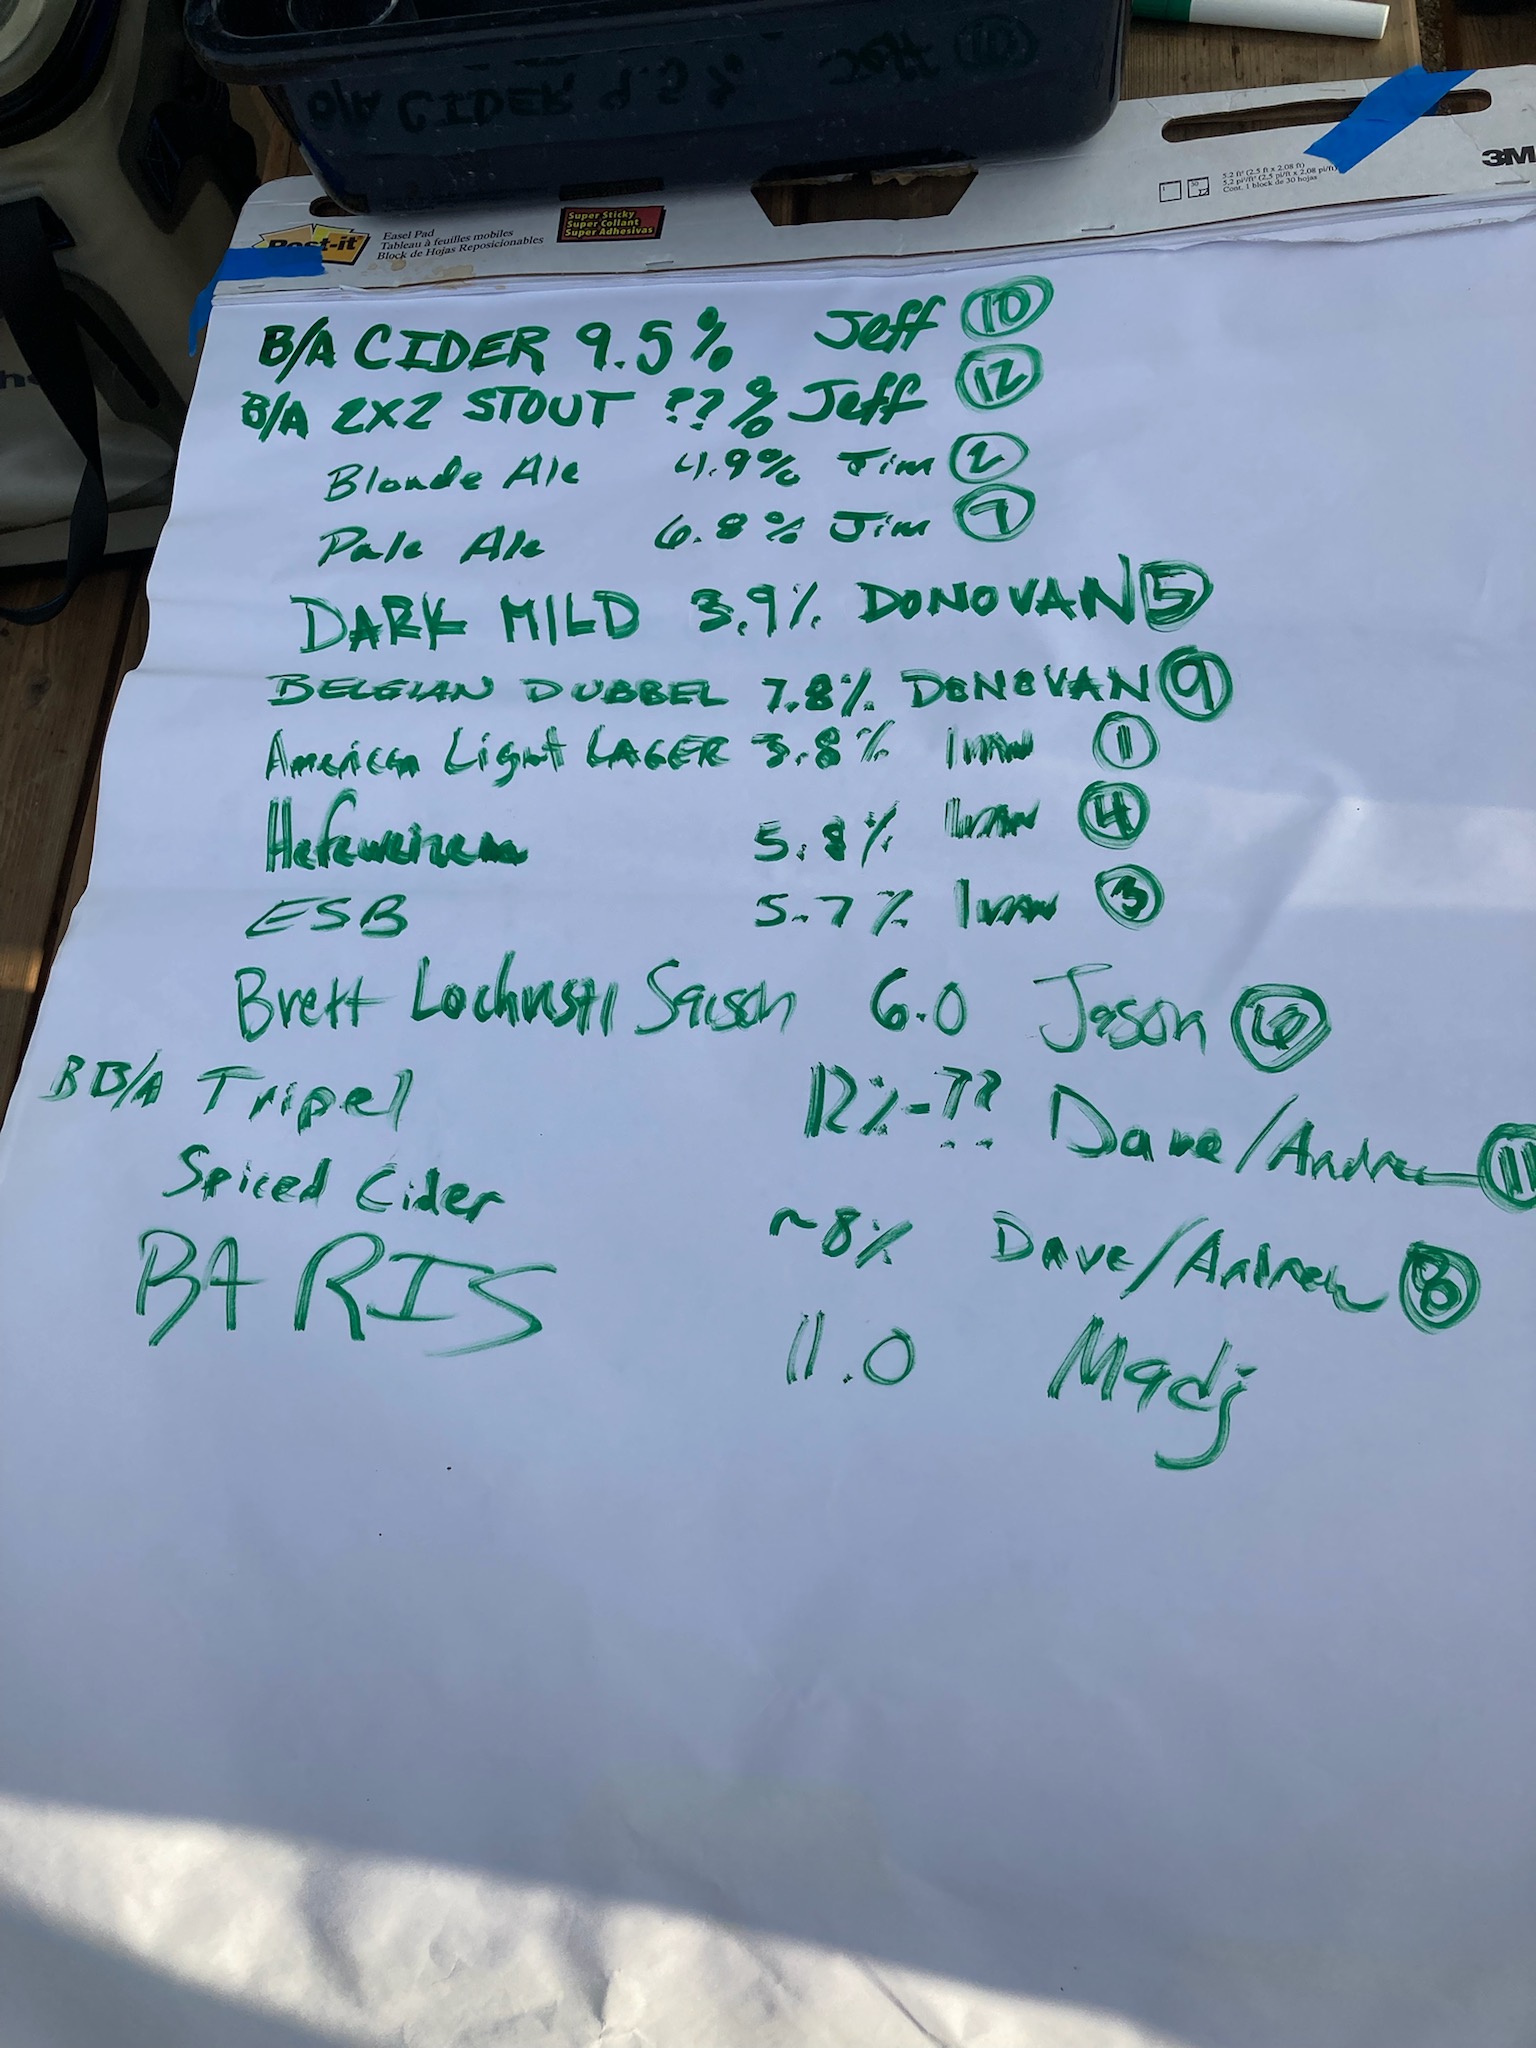 B/A CIDER 9.5% Jeff 10
Post-it
Easel Pad
Tableau à feuilles mobiles
Block de Hojas Reposicionables
Super Sticky
Super Collant
Super Adhesivas
5.2 ft² (2.5 ft x 2.08 ft)
5,2 pi²/ft² (2,5 pi/ft x 2,08 pi/ft)
Cont. 1 block de 30 hojas
3M
B/A CIDER 9.5% Jeff 10
B/A 2X2 STOUT ??% Jeff 12
Blonde Ale 4.9% Jim 2
Pale Ale 6.8% Jim 7
DARK MILD 3.9% DONOVAN 5
BELGIAN DUBBEL 7.8% DONOVAN 9
American Light LAGER 3.8% Ivan 1
Hefeweizen 5.8% Ivan 4
ESB 5.7% Ivan 3
Brett Saison 6.0 Jason 6
B B/A Tripel 12%-?? Dave/Andrew 11
Spiced Cider ~8% Dave/Andrew 8
BA RIS 11.0 Madj